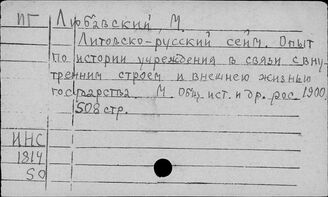 ПГ Любавский М.
Литовско-русский сейм. Опыт
по истории учреждения в связи с вну-
тренним строем и внешнею жизнью
государства М Общ. ист. и др. рос. 1900
508 стр.
ИНС
1814
50